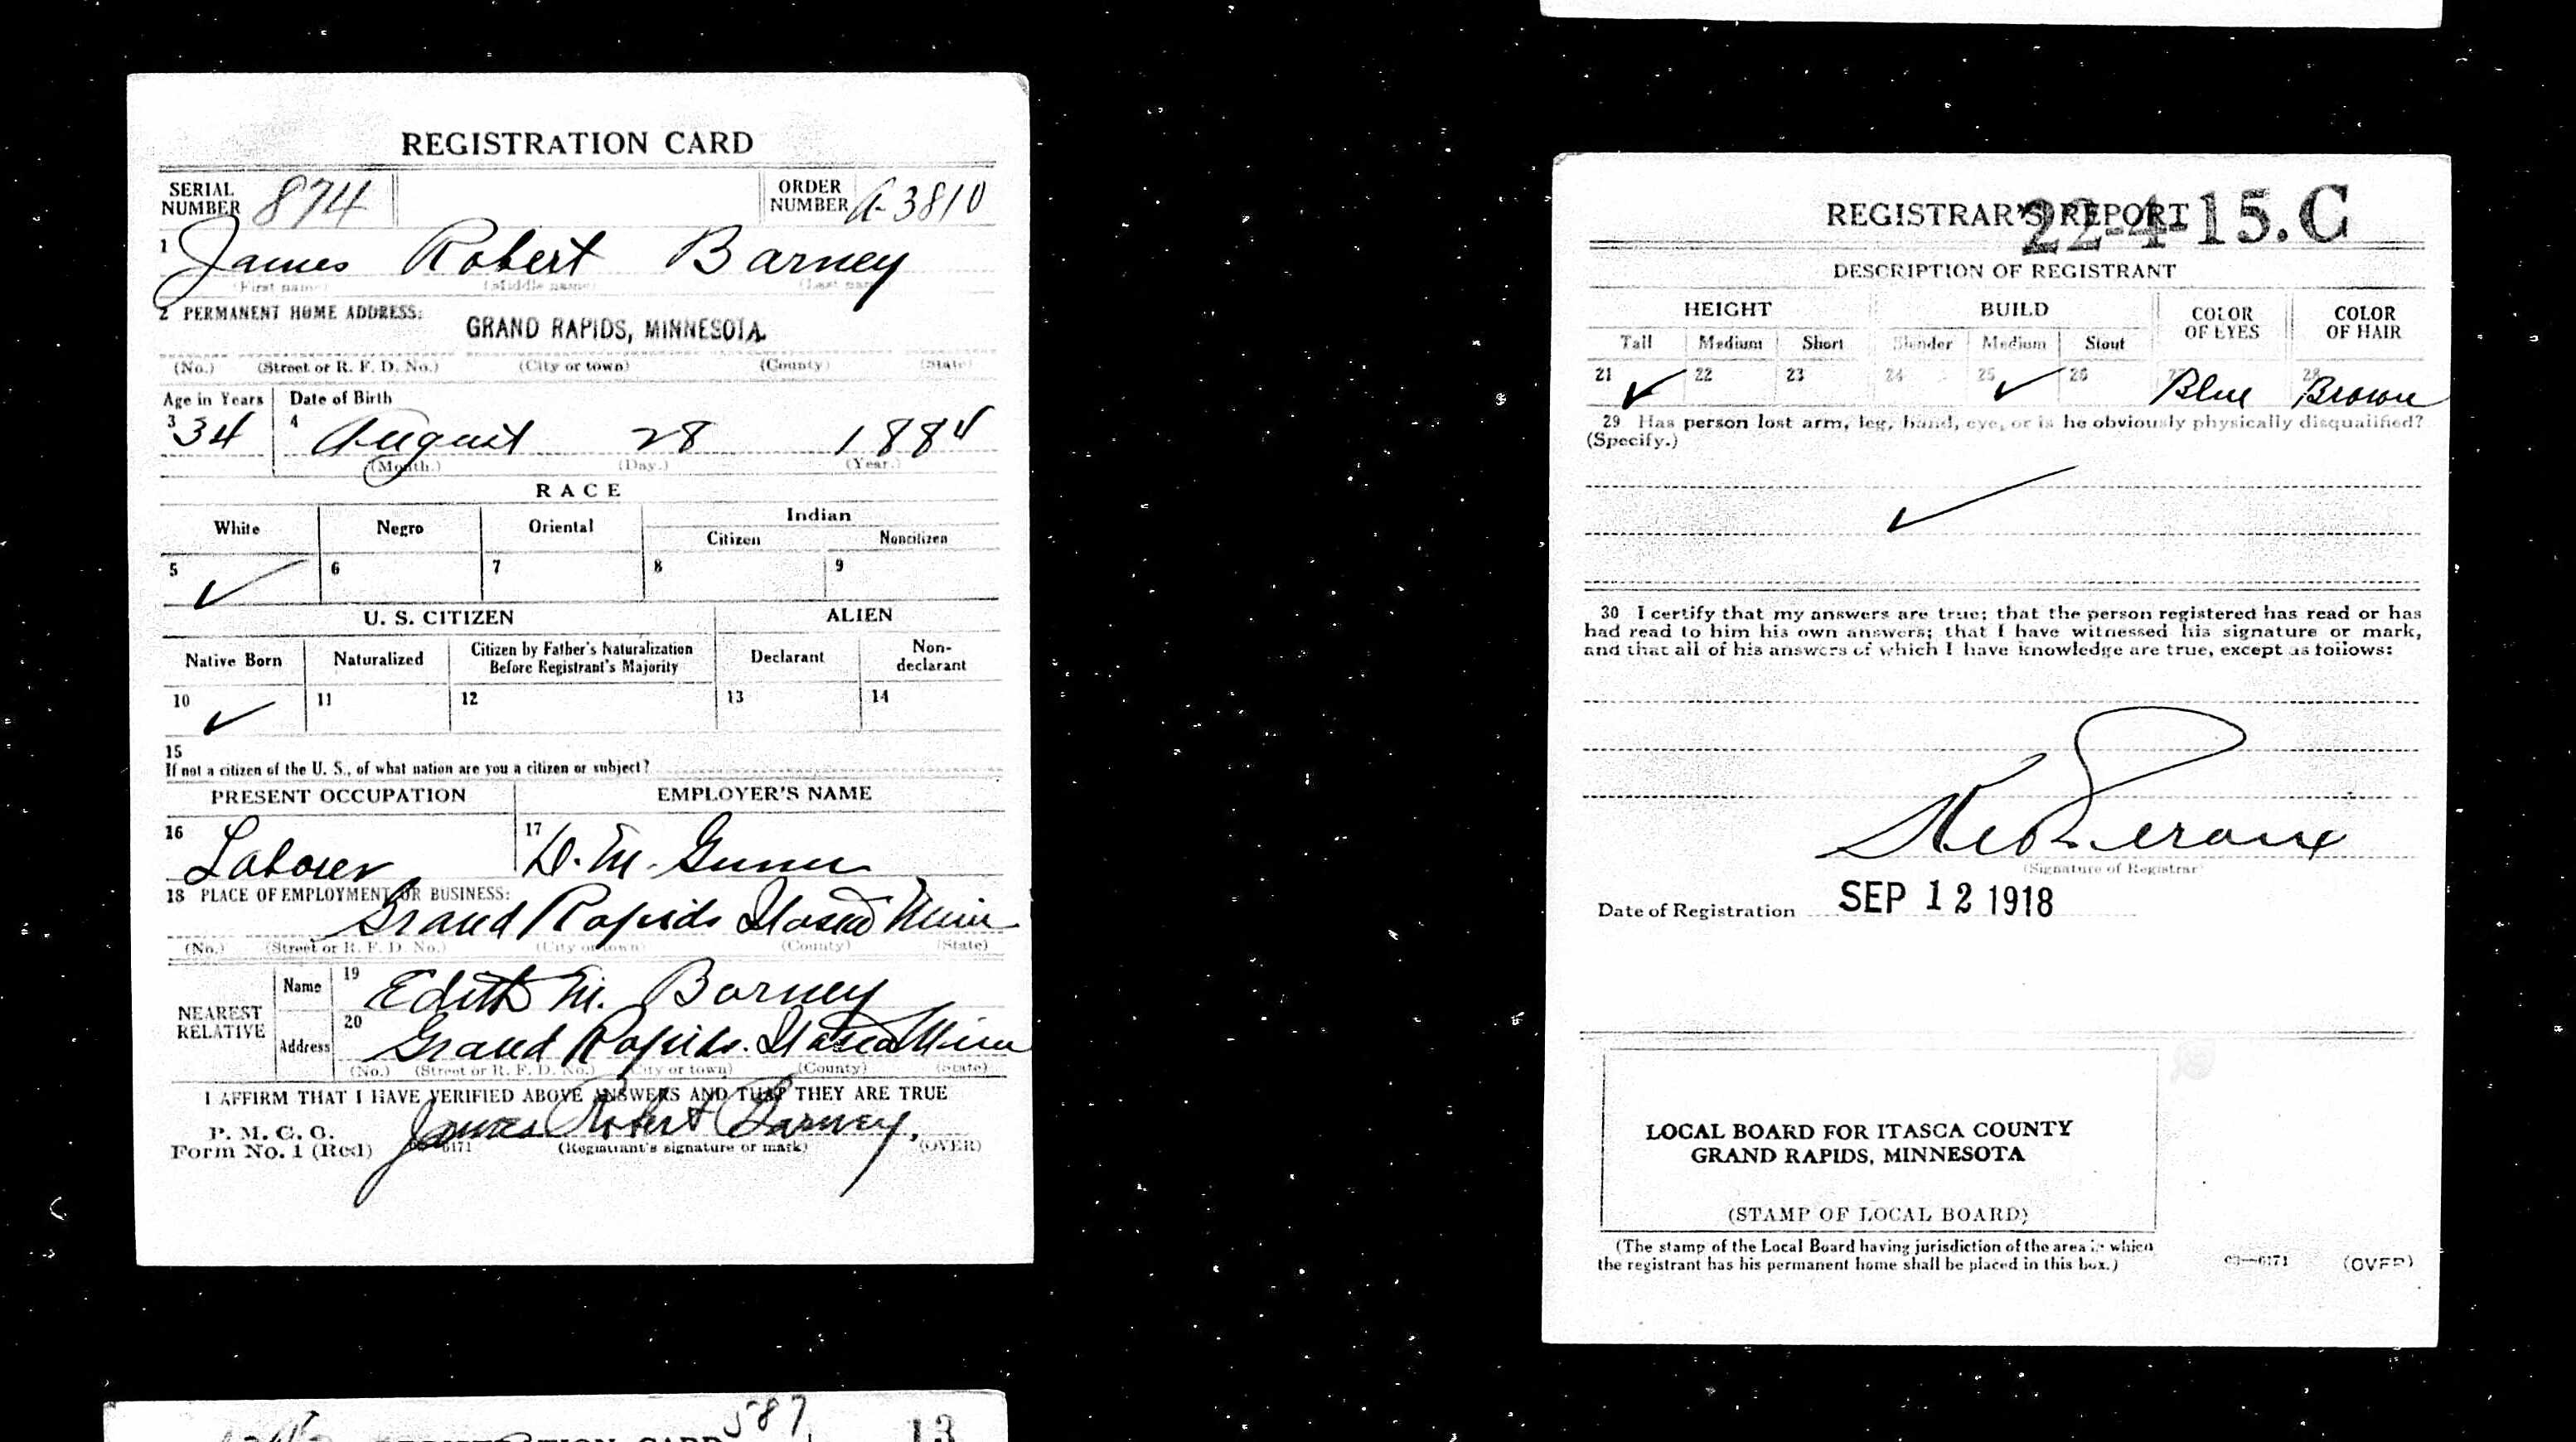 REGISTRATION CARD
SERIAL NUMBER 874 ORDER NUMBER A-3810
1 James Robert Barney
(First name) (Middle name) (Last name)
2 PERMANENT HOME ADDRESS:
GRAND RAPIDS, MINNESOTA.
(No.) (Street or R. F. D. No.) (City or town) (County) (State)
Age in Years Date of Birth
3 34 4 August 28 1884
(Month.) (Day.) (Year.)
RACE
White Negro Oriental Indian
Citizen Noncitizen
5 ✓ 6 7 8 9
U. S. CITIZEN ALIEN
Native Born Naturalized Citizen by Father's Naturalization Before Registrant's Majority Declarant Non-declarant
10 ✓ 11 12 13 14
15
If not a citizen of the U. S., of what nation are you a citizen or subject?
PRESENT OCCUPATION EMPLOYER'S NAME
16 Laborer 17 D. M. Gunn
18 PLACE OF EMPLOYMENT OR BUSINESS:
Grand Rapids Itasca Minn
(No.) (Street or R. F. D. No.) (City or town) (County) (State)
NEAREST RELATIVE
Name 19 Edith M. Barney
Address 20 Grand Rapids. Itasca Minn
(No.) (Street or R. F. D. No.) (City or town) (County) (State)
I AFFIRM THAT I HAVE VERIFIED ABOVE ANSWERS AND THAT THEY ARE TRUE
P. M. G. O.
Form No. 1 (Red) James Robert Barney.
6171 (Registrant's signature or mark) (OVER)
587
13
REGISTRATION CARD
REGISTRAR'S REPORT
22-4-15.C
DESCRIPTION OF REGISTRANT
HEIGHT BUILD COLOR OF EYES COLOR OF HAIR
Tall Medium Short Slender Medium Stout
21 ✓ 22 23 24 25 ✓ 26 27 Blue 28 Brown
29 Has person lost arm, leg, hand, eye, or is he obviously physically disqualified?
(Specify.)
✓
30 I certify that my answers are true; that the person registered has read or has
had read to him his own answers; that I have witnessed his signature or mark,
and that all of his answers of which I have knowledge are true, except as follows:
(Signature of Registrar)
Date of Registration SEP 12 1918
LOCAL BOARD FOR ITASCA COUNTY
GRAND RAPIDS, MINNESOTA
(STAMP OF LOCAL BOARD)
(The stamp of the Local Board having jurisdiction of the area in which
the registrant has his permanent home shall be placed in this box.)
03—6171 (OVER)